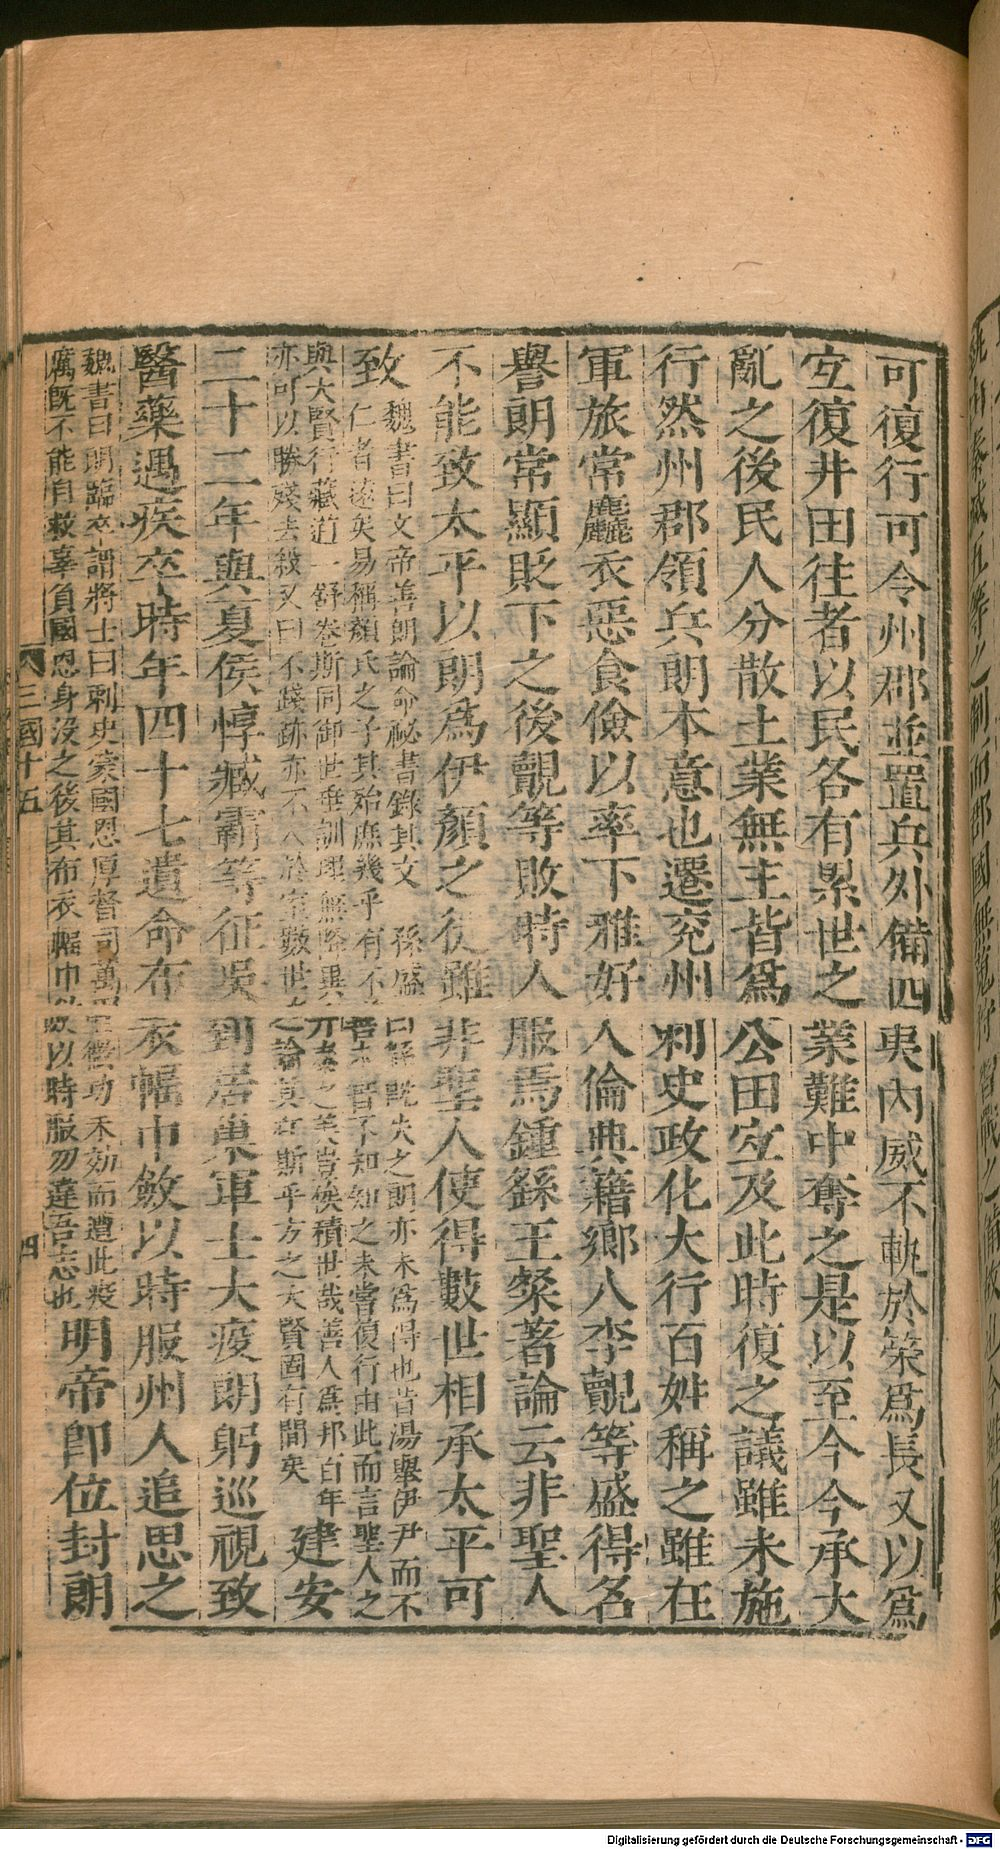 可復行可令州郡並置兵外備四夷內威不軌於策爲長又以爲
宜復井田往者以民各有累世之業難中奪之是以至今今承大
亂之後民人分散土業無主皆爲公田宜及此時復之議雖未施
行然州郡領兵朗本意也遷兗州刺史政化大行百姓稱之雖在
軍旅常麤衣惡食儉以率下雅好人倫典籍鄉人李覿等盛得名
譽朗常顯貶下之後覿等敗時人服焉鍾繇王粲著論云非聖人
不能致太平以朗爲伊顏之徒雖非聖人使得數世相承太平可
致
魏書曰文帝善朗論命祕書錄其文 孫盛曰繇既失之朗亦未爲得也昔湯舉伊尹而不
仁者遠矣易稱顏氏之子其殆庶幾乎有不善未嘗不知知之未嘗復行由此而言聖人之
與大賢行藏道一舒卷斯同御世垂訓理無降異升泰之美豈俟積世哉善人爲邦百年
亦可以勝殘去殺又曰不踐跡亦不入於室數世之論其在斯乎方之大賢固有間矣
建安
二十二年與夏侯惇臧霸等征吳到居巢軍士大疫朗躬巡視致
醫藥遇疾卒時年四十七遺命布衣幅巾斂以時服州人追思之
魏書曰朗臨卒謂將士曰刺史蒙國恩厚督司萬里微功未効而遭此疫
癘既不能自救辜負國恩身沒之後其布衣幅巾斂以時服勿違吾志也
明帝即位封朗
三國十五
四
Digitalisierung gefördert durch die Deutsche Forschungsgemeinschaft - DFG